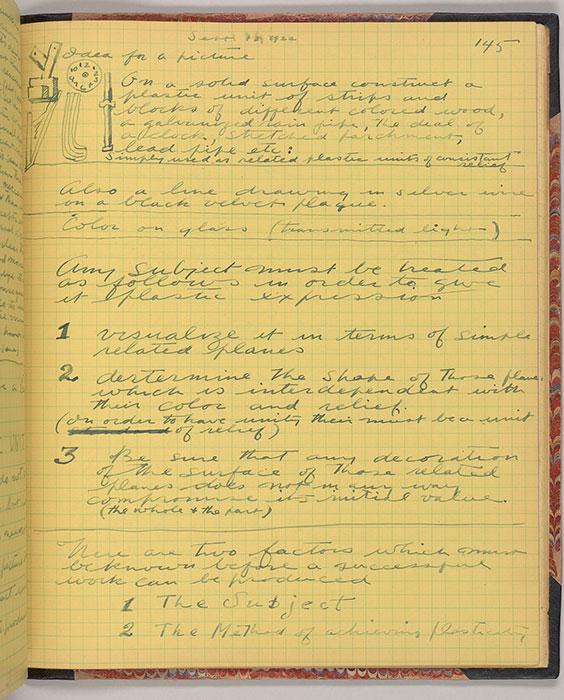 145
Idea for a picture
On a solid surface construct a
plastic unit of strips and
blocks of different colored wood,
a galvanized rain pipe, the deal of
a clock, stretched parchment,
lead pipe etc:
Simply used as related plastic units of consistant
relief
Also a line drawing in silver wire
on a black velvet plaque.
Color on glass (transmitted light)
Any subject must be treated
as follows in order to give
it plastic expression
1 visualize it in terms of simple
related planes
2 dertermine the shape of those planes
which is interdependent with
their color and relief.
(In order to have unity their must be a unit
of relief)
3 Be sure that any decoration
of the surface of those related
planes does not in any way
compromise its initial value.
(the whole + the part)
There are two factors which must
be known before a successful
work can be produced
1 The Subject
2 The Method of achieving plasticity